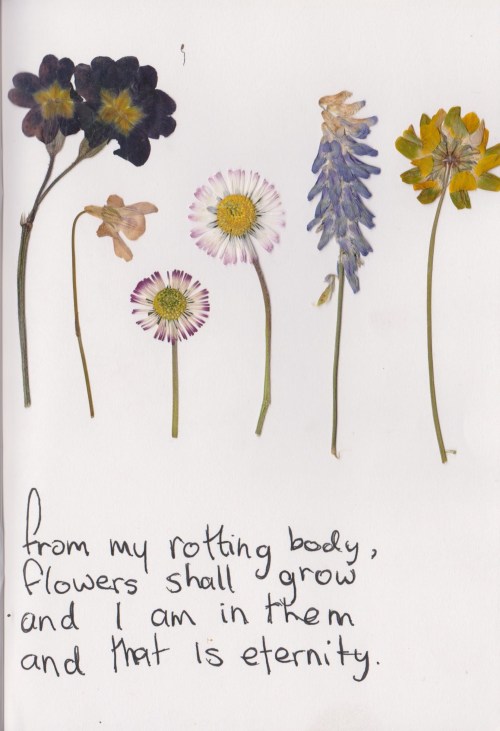 from my rotting body,
flowers shall grow
and I am in them
and that is eternity.